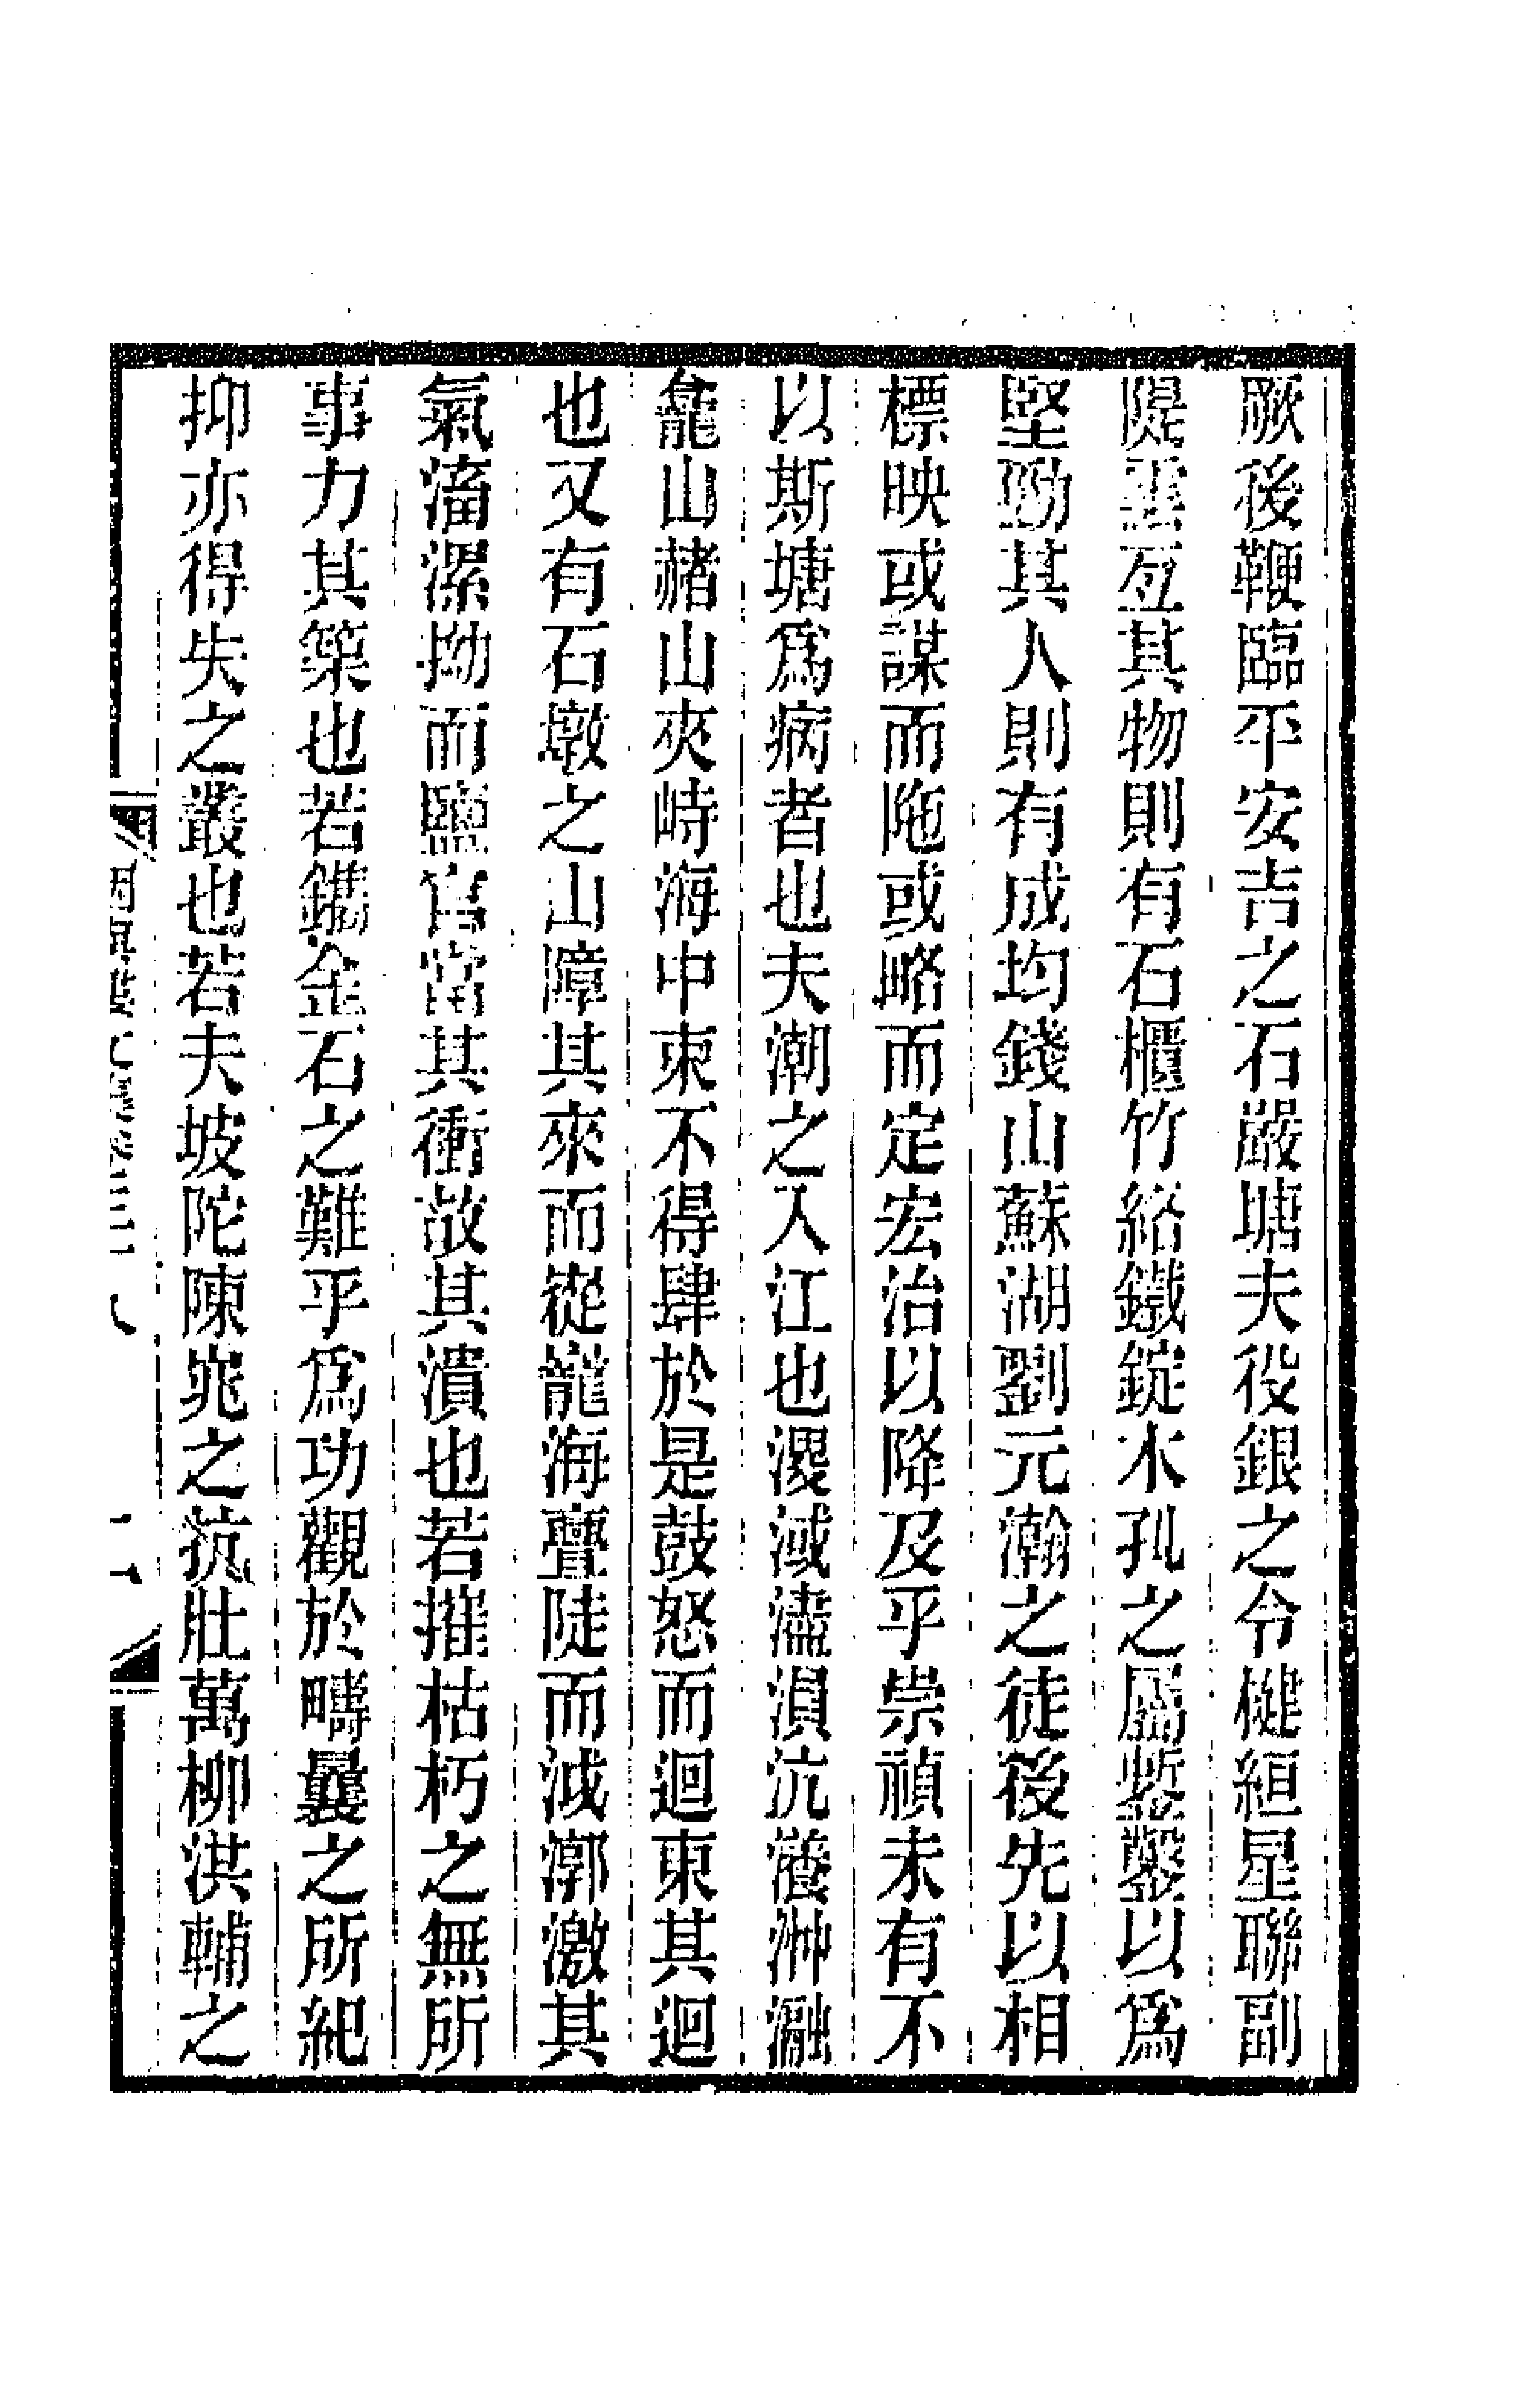 厥後鞭臨平安吉之石嚴塘夫役銀之令楗絙星聯副
隄雲亙其物則有石櫃竹絡鐵錠木孔之屬䥫鑿以爲
堅勁其人則有成均錢山蘇湖劉元瀚之徒後先以相
標映或謀而陁或略而定宏治以降及乎崇禎未有不
以斯塘爲病者也夫潮之入江也㴒淢濜溳沆瀁浺瀜
龕山赭山夾峙海中束不得肆於是鼓怒而迴東其迴
也又有石墩之山障其來而從龕海亹陡而淢漷激其
氣滀漯拗而鹽官當其衝故其潰也若摧枯朽之無所
事力其築也若鐫金石之難乎爲功觀於疇曩之所紀
抑亦得失之叢也若夫坡陀陳窕之抗壯萬柳淇輔之